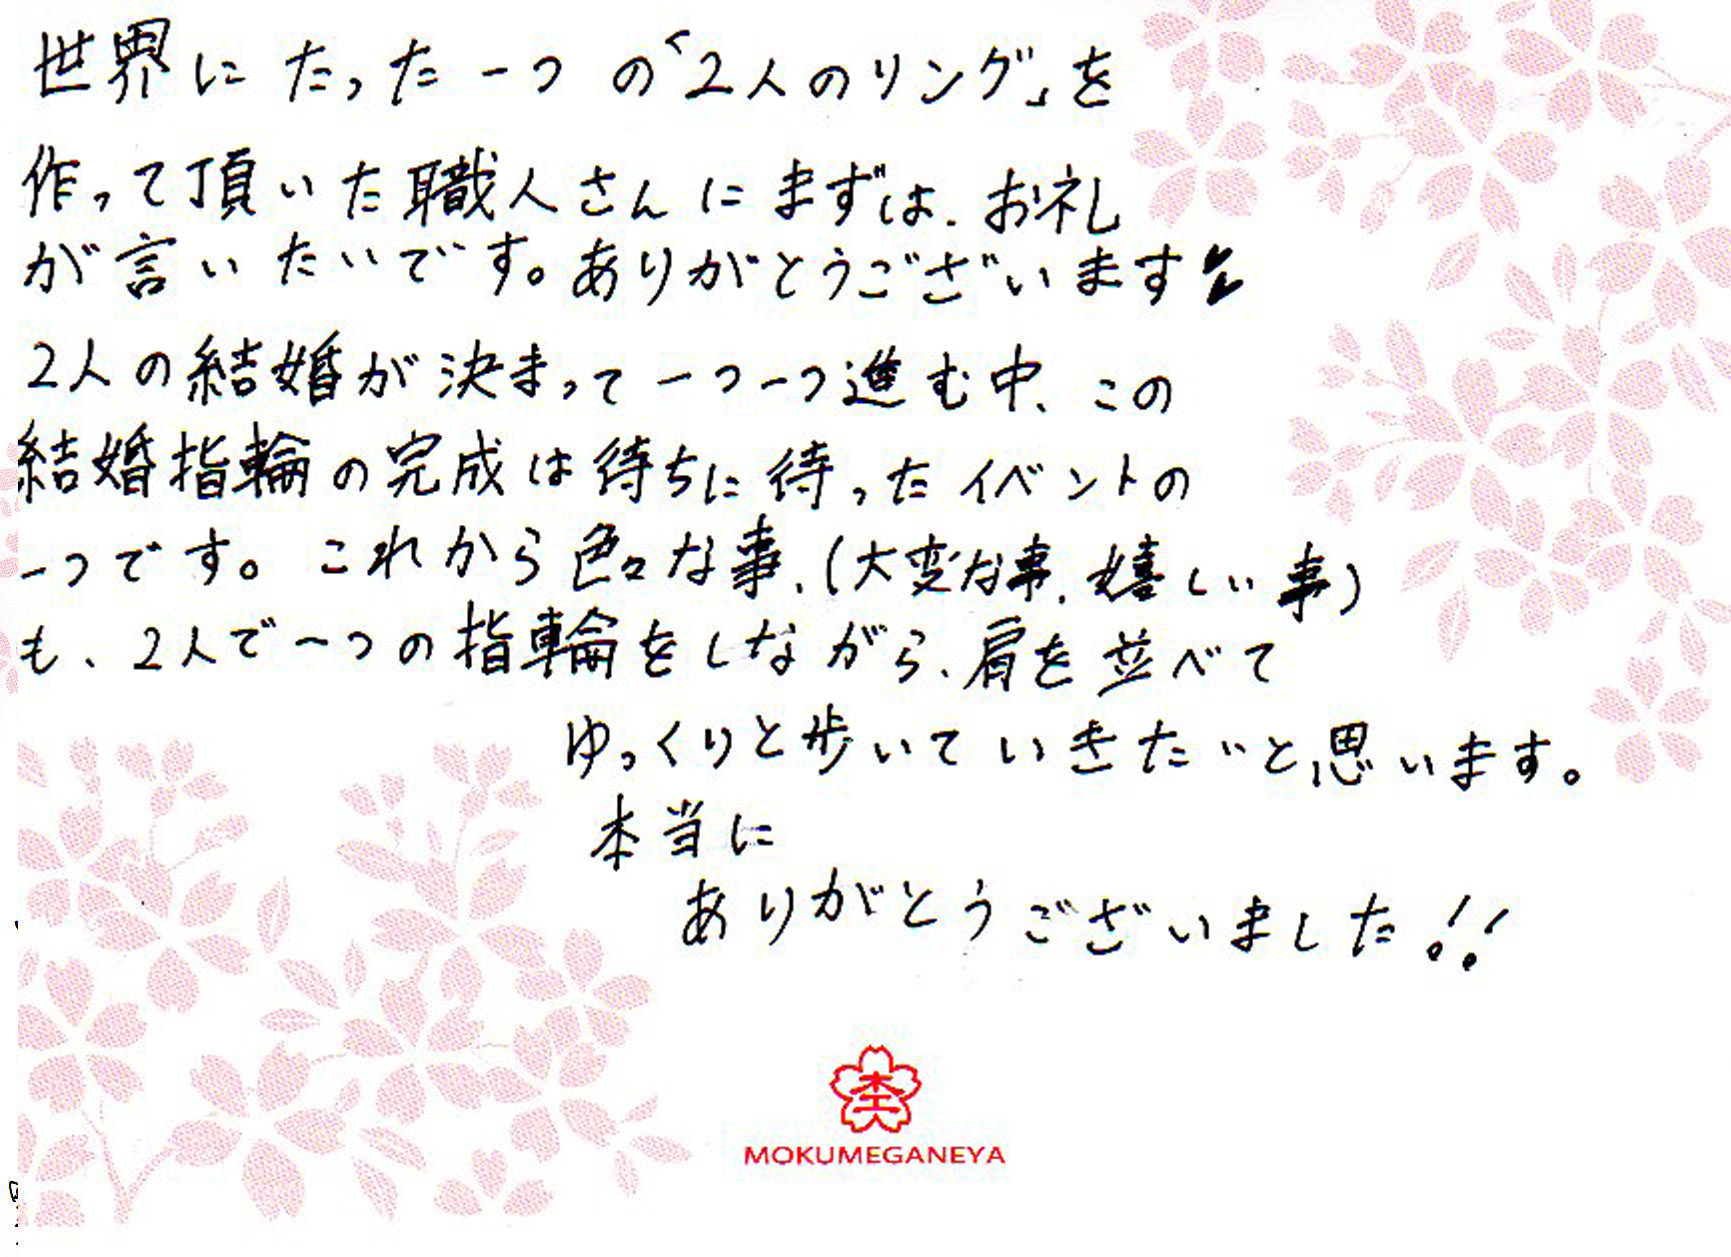 世界にたった一つの「2人のリング」を
作って頂いた職人さんにまずは、お礼
が言いたいです。ありがとうございます
2人の結婚が決まって一つ一つ進む中、この
結婚指輪の完成は待ちに待ったイベントの
一つです。これから色々な事、(大変な事、嬉しい事)
も、2人で一つの指輪をしながら、肩を並べて
ゆっくりと歩いていきたいと思います。
本当に
ありがとうございました!!
MOKUMEGANEYA